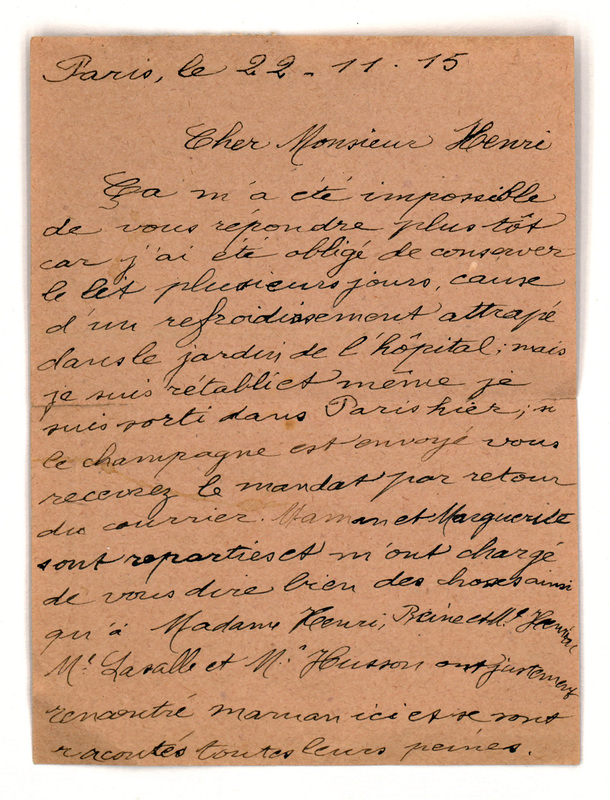 Paris, le 22 - 11 . 15
Cher Monsieur Henri
Ça m'a été impossible
de vous répondre plus tôt
car j'ai été obligé de conserver
le lit plusieurs jours, cause
d'un refroidissement attrapé
dans le jardin de l'hôpital ; mais
je suis rétabli et même je
suis sorti dans Paris hier ; si
le champagne est envoyé vous
recevrez le mandat par retour
du courrier. Maman et Marguerite
sont reparties et m'ont chargé
de vous dire bien des choses ainsi
qu'à Madame Henri, Reine et
Mr Lasalle et Mr Husson ont justement
rencontré maman ici et se sont
racontés toutes leurs peines.